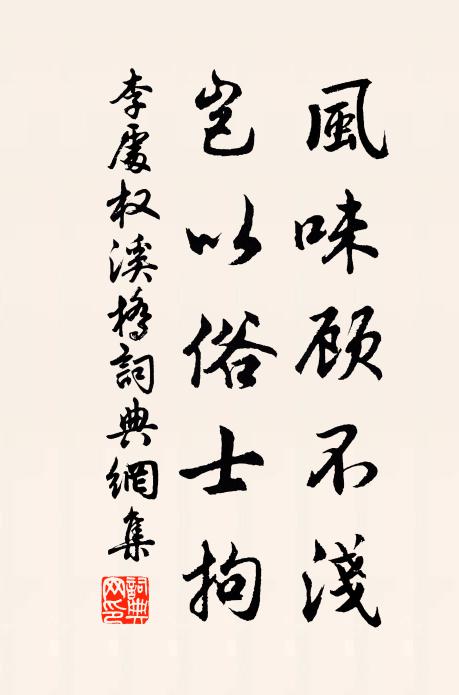 風味顾不淺
豈以俗士拘
李處权溪橋詞典網集
詞典網印